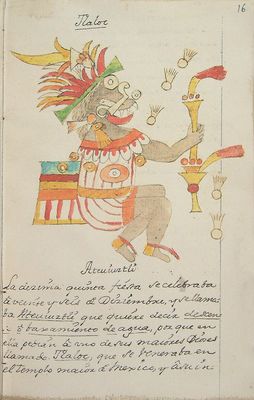 16
Tlaloc
Atemuztli
La decima quinta fiesta se celebraba
a veinte y seis de Diciembre, y se llama
ba Atemuztli que quiere decir descen
baxamiento de agua, porque en
ella pedian a uno de sus maiores Dioses
llamado Tlaloc, que se veneraba en
el templo maior de Mexico, y